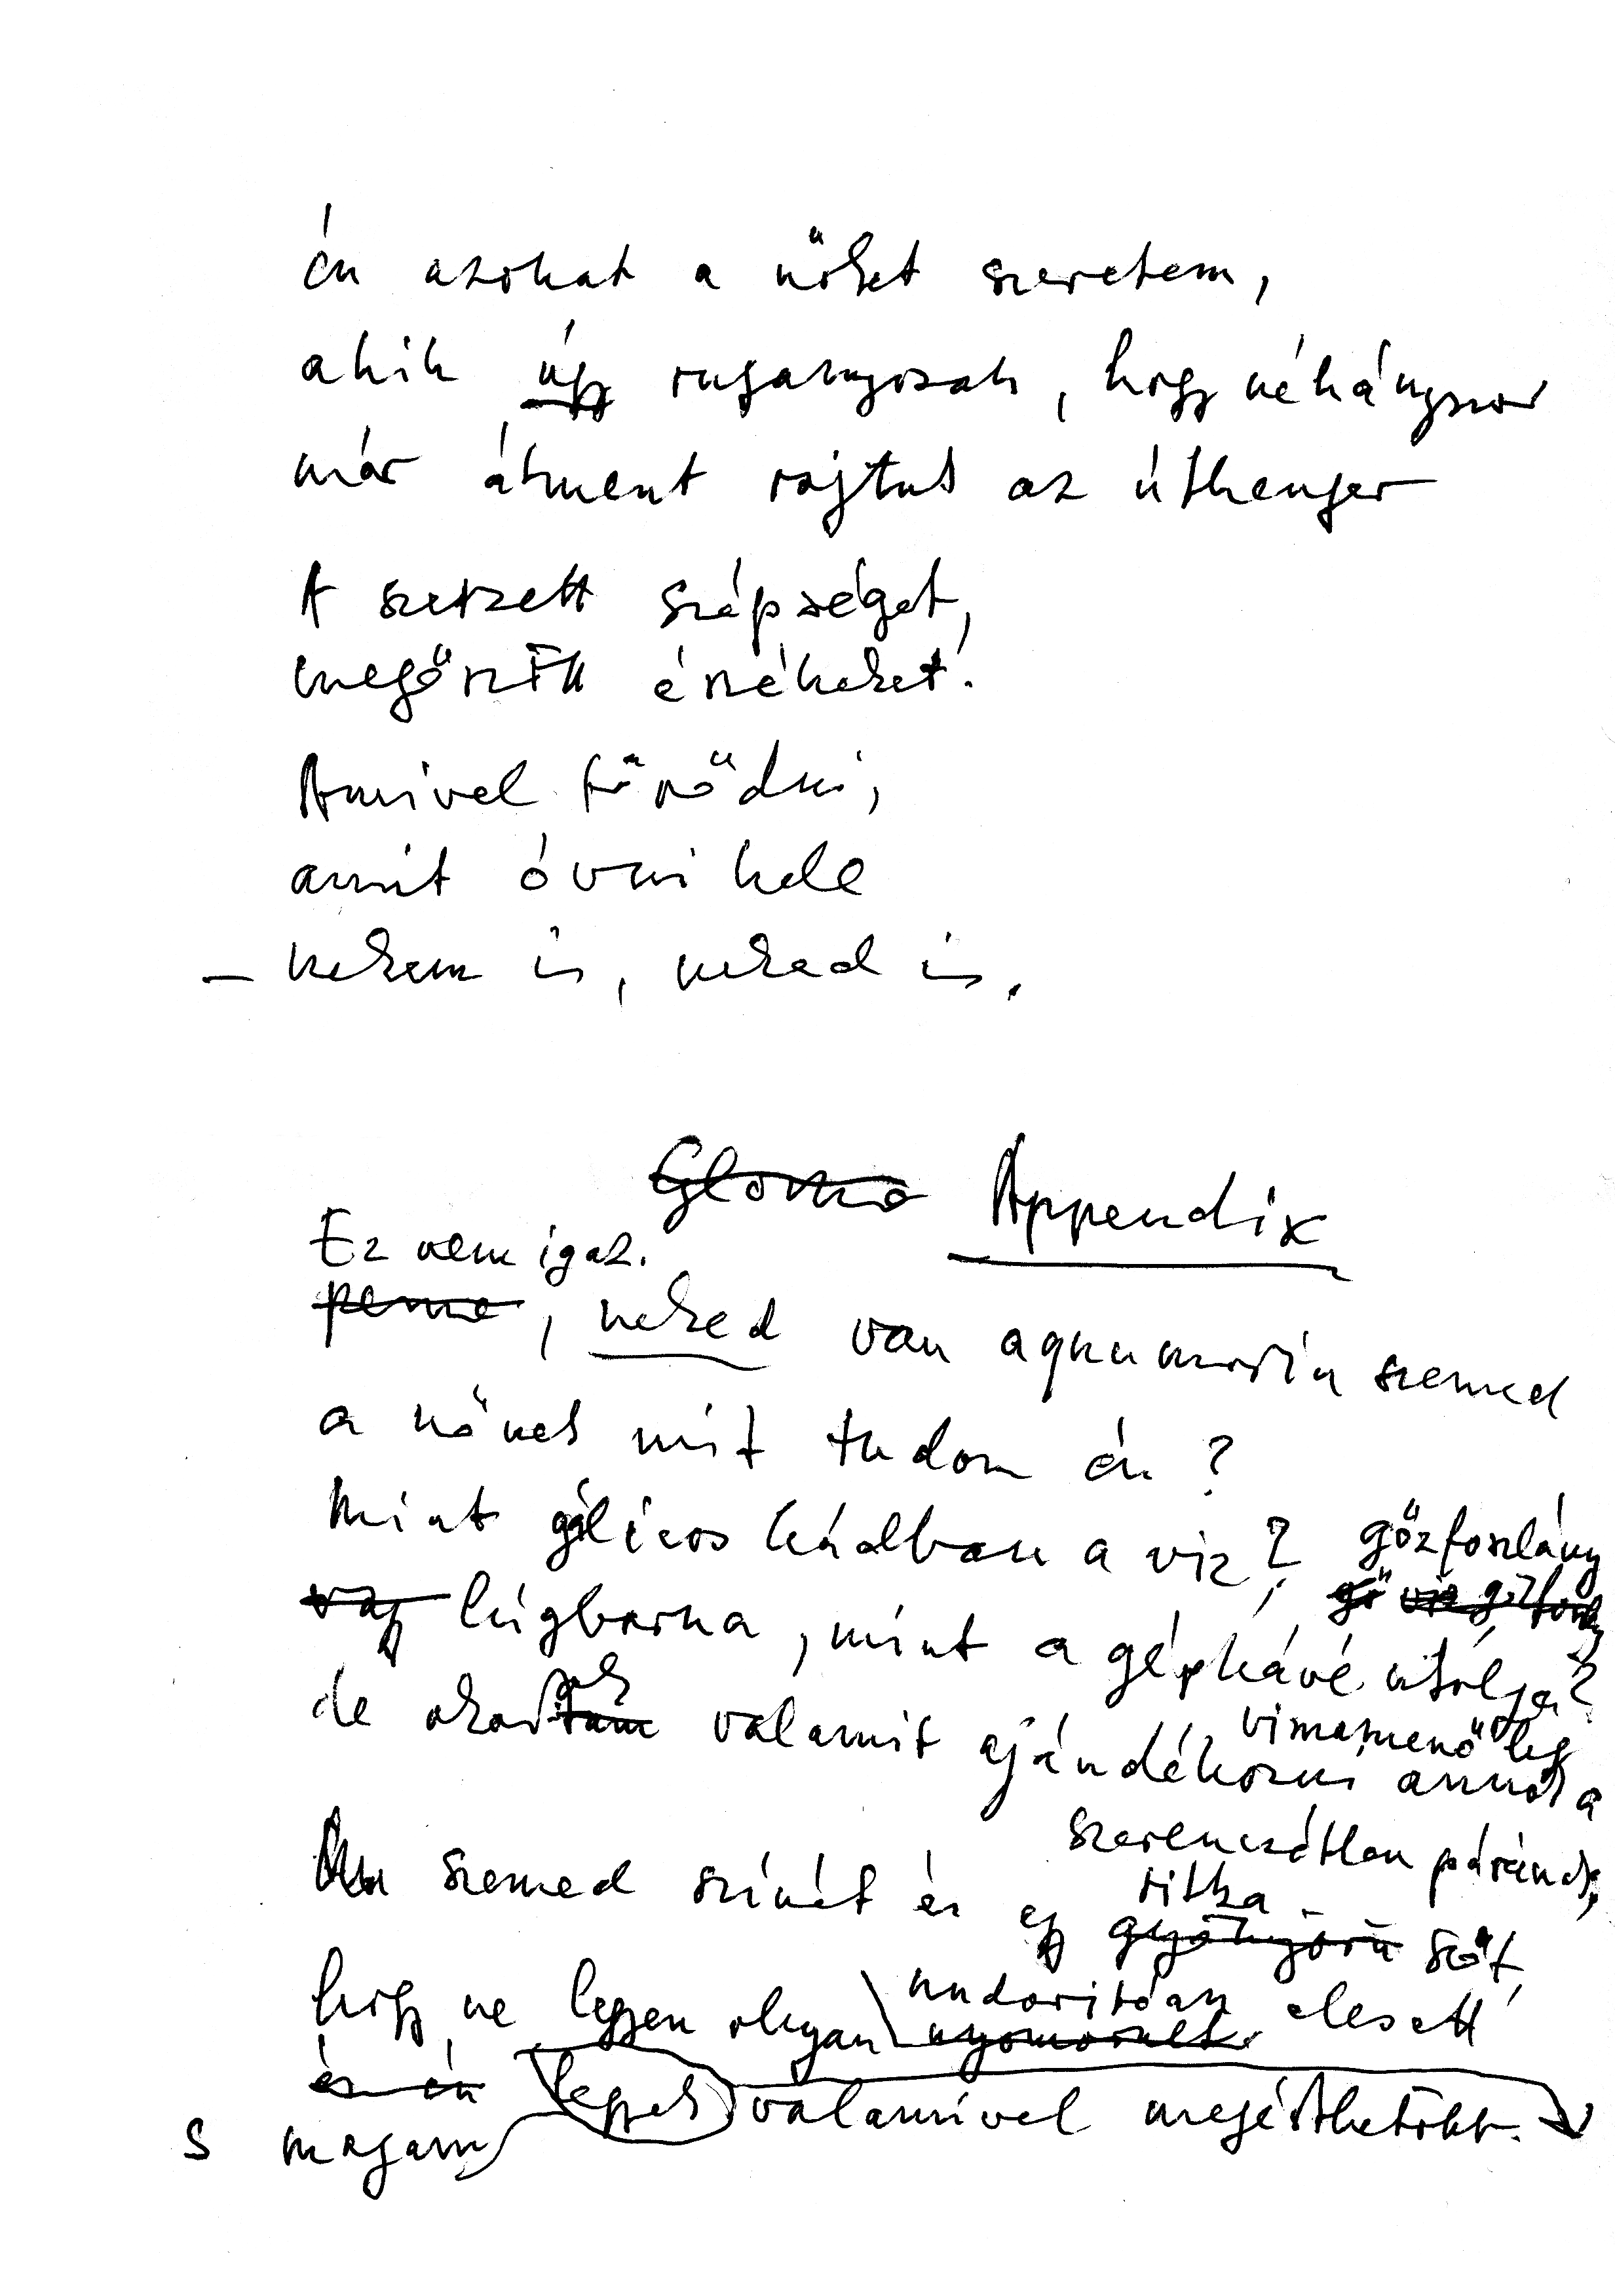 én azokat a nőket szeretem,
akik úgy ruganyosak, hogy néhányszor
már átment rajtuk az úthenger
A szerzett szépséget,
megőrzött értékeket.
Amivel törődni,
amit óvni kell
– nekem is, neked is.
Appendix
Ez nem igaz.
, neked van aquamarin szemed
a nőnek mit tudom én?
Mint gálicos kádban a víz? gőzfoszlány
vagy lúgbarna, mint a gépkávé utólja?
de akartam ok valamit ajándékozni annak a
viszamenőleg
szerencsétlen párának,
szemed színét és egy gyönyörű szót,
ritka
hogy ne legyen olyan nyomorult elesett
undorítóan
és én legyek valamivel megérthetőbb.
s magam